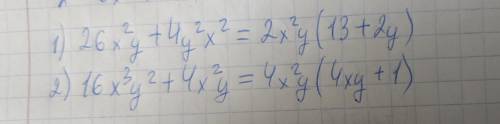 1) 26x²y + 4y²x² = 2x²y(13 + 2y)
2) 16x³y² + 4x²y = 4x²y(4xy + 1)